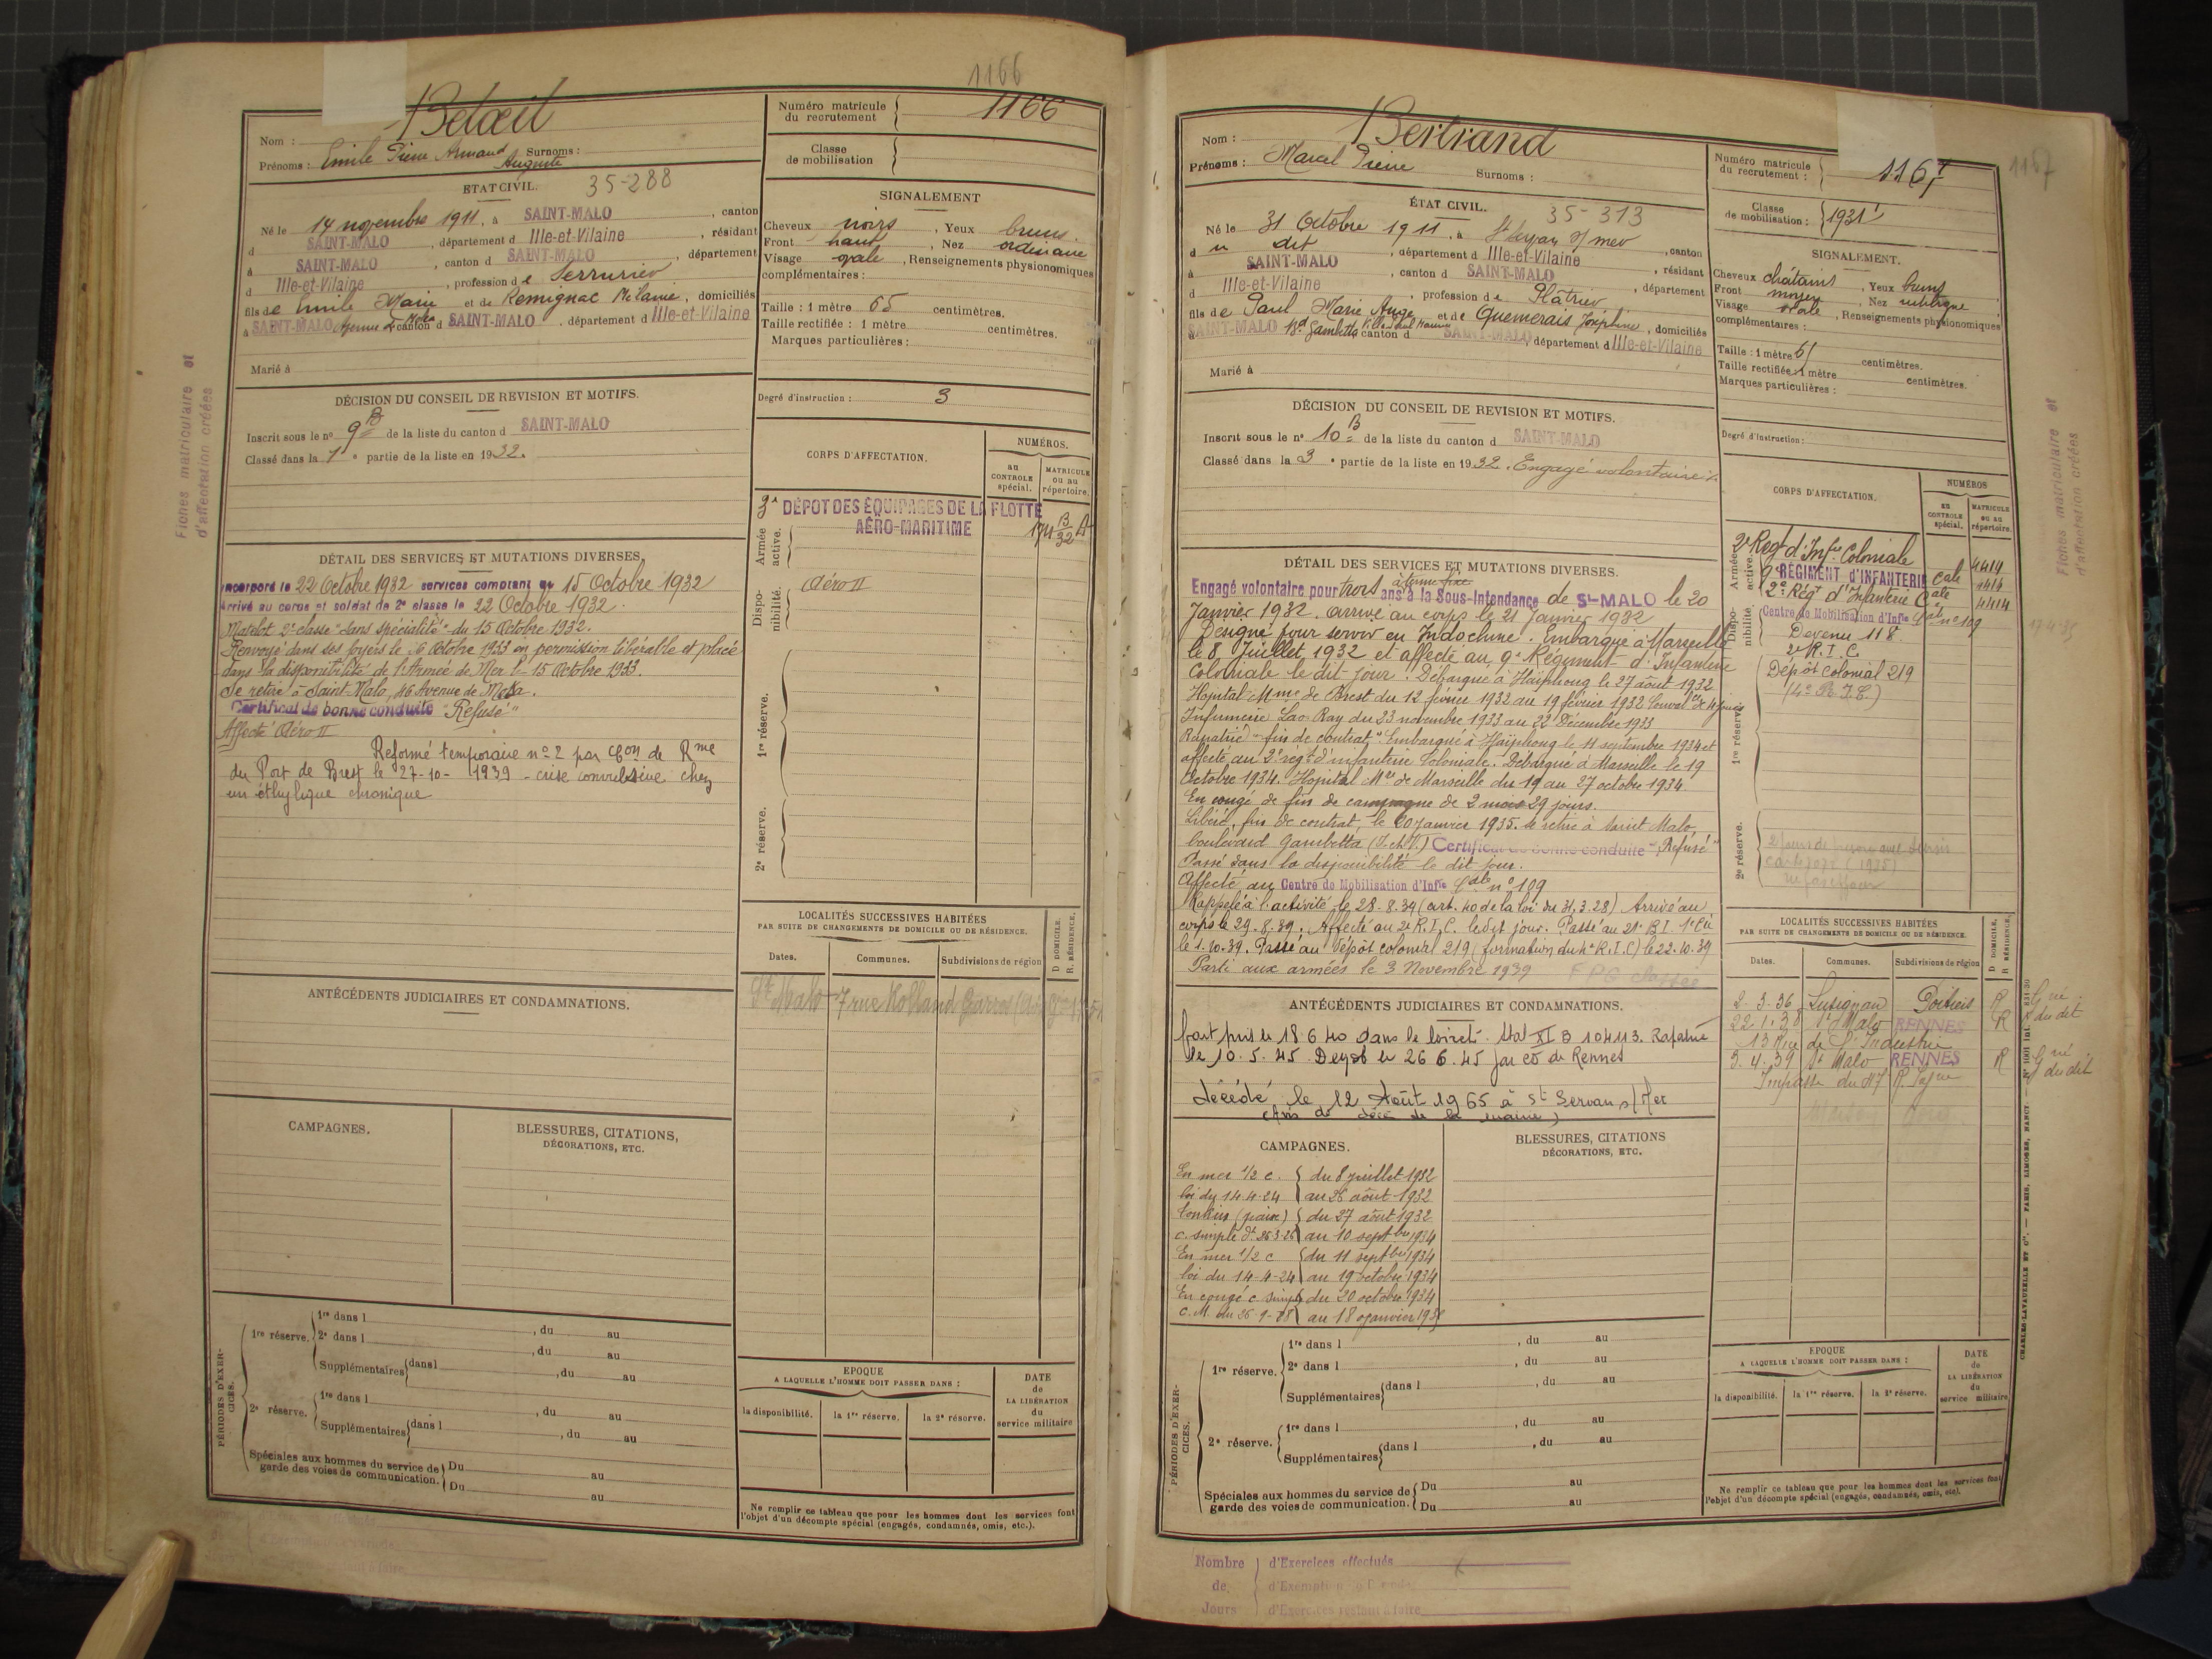 1166
Nom : Betœil
Prénoms : Emile Pierre Armand Auguste Surnoms :
Numéro matricule du recrutement 1166
Classe de mobilisation
ETAT CIVIL. 35-288
Né le 14 novembre 1911, à SAINT-MALO, canton
d SAINT-MALO, département d Ille-et-Vilaine, résidant
à SAINT-MALO, canton d SAINT-MALO, département
d Ille-et-Vilaine, profession de Serrurier
fils de Emile Marie et de Remignac Mélanie, domiciliés
à SAINT-MALO Avenue de Moka canton d SAINT-MALO, département d Ille-et-Vilaine
Marié à
SIGNALEMENT
Cheveux noirs, Yeux bruns.
Front haut, Nez ordinaire
Visage ovale, Renseignements physionomiques
complémentaires :
Taille : 1 mètre 65 centimètres.
Taille rectifiée : 1 mètre centimètres.
Marques particulières :
Degré d'instruction : 3
DÉCISION DU CONSEIL DE REVISION ET MOTIFS.
Inscrit sous le nº 9 B de la liste du canton d SAINT-MALO
Classé dans la 1e partie de la liste en 1932.
CORPS D'AFFECTATION.
NUMÉROS.
au CONTROLE spécial.
MATRICULE ou au répertoire.
Armée active.
3e DÉPOT DES ÉQUIPAGES DE LA FLOTTE
AÉRO-MARITIME
Dispo-nibilité.
Aéro II
1re réserve.
2e réserve.
DÉTAIL DES SERVICES ET MUTATIONS DIVERSES.
Incorporé le 22 Octobre 1932 services comptant du 15 Octobre 1932
Arrivé au corps et soldat de 2e classe le 22 Octobre 1932.
Matelot 2e classe "sans spécialité" du 15 Octobre 1932.
Renvoyé dans ses foyers le 6 Octobre 1933 en permission libérable et placé
dans la disponibilité de l'Armée de Mer le 15 Octobre 1933.
Se retire à Saint-Malo, 46 Avenue de Moka.
Certificat de bonne conduite "Refusé"
Affecté Aéro II
Reformé temporaire nº 2 par Con de Rme
du Port de Brest le 27-10-1939 - crise convulsive chez
un éthylique chronique
LOCALITÉS SUCCESSIVES HABITÉES
PAR SUITE DE CHANGEMENTS DE DOMICILE OU DE RÉSIDENCE.
D DOMICILE.
R. RÉSIDENCE.
Dates. Communes. Subdivisions de région
St Malo 7 rue Rolland Garros
ANTÉCÉDENTS JUDICIAIRES ET CONDAMNATIONS.
CAMPAGNES.
BLESSURES, CITATIONS,
DÉCORATIONS, ETC.
PÉRIODES D'EXERCICES.
1re réserve. 1re dans l , du au
2e dans l , du au
Supplémentaires dans l , du au
2e réserve. 1re dans l , du au
Supplémentaires dans l , du au
Spéciales aux hommes du service de garde des voies de communication. Du au
Du au
EPOQUE
A LAQUELLE L'HOMME DOIT PASSER DANS :
la disponibilité. la 1re réserve. la 2e réserve.
DATE de LA LIBÉRATION du service militaire
Ne remplir ce tableau que pour les hommes dont les services font
l'objet d'un décompte spécial (engagés, condamnés, omis, etc.).
Fiches matriculaire et
d'affectation créées
Nom : Bertrand
Prénoms : Marcel Pierre Surnoms :
Numéro matricule du recrutement : 1167
1167
Classe de mobilisation : 1931
ÉTAT CIVIL. 35-313
Né le 31 Octobre 1911, à St Servan s/mer, canton
d u dit, département d Ille-et-Vilaine, résidant
à SAINT-MALO, canton d SAINT-MALO, département
d Ille-et-Vilaine, profession de Plâtrier
fils de Paul Marie Ange et de Quemerais Joséphine, domiciliés
à SAINT-MALO Bd Gambetta canton d SAINT-MALO, département d Ille-et-Vilaine
Marié à
SIGNALEMENT.
Cheveux châtains, Yeux bruns
Front moyen, Nez rectiligne
Visage ovale, Renseignements physionomiques
complémentaires :
Taille : 1 mètre 61 centimètres.
Taille rectifiée : 1 mètre centimètres.
Marques particulières :
Degré d'instruction :
DÉCISION DU CONSEIL DE REVISION ET MOTIFS.
Inscrit sous le nº 10 B de la liste du canton d SAINT-MALO
Classé dans la 3e partie de la liste en 1932. Engagé volontaire
CORPS D'AFFECTATION.
NUMÉROS
au CONTROLE spécial.
MATRICULE ou au répertoire.
Armée active.
2e Regt d'Infie Coloniale 4414
9e RÉGIMENT D'INFANTERIE Cale 4414
2e Régt d'Infanterie Cale 4414
Dispo-nibilité
Centre de Mobilisation d'Infie Cale nº 109
Devenu 118
2e R.I.C.
Dépôt colonial 219
(4e R.I.C.)
1re réserve.
2e réserve.
DÉTAIL DES SERVICES ET MUTATIONS DIVERSES.
à terme fixe
Engagé volontaire pour trois ans à la Sous-Intendance de St-MALO le 20
Janvier 1932. Arrivé au corps le 21 Janvier 1932
Désigné pour servir en Indochine. Embarqué à Marseille
le 8 Juillet 1932 et affecté au 9e Régiment d'Infanterie
Coloniale le dit jour. Débarqué à Haïphong le 27 août 1932
Hopital Mme de Brest du 12 février 1932 au 19 février 1932
Infirmerie Lao-Kay du 23 novembre 1933 au 22 Décembre 1933
Rapatrié "fin de contrat" Embarqué à Haïphong le 11 septembre 1934 et
affecté au 2e régt d'infanterie Coloniale. Débarqué à Marseille le 19
Octobre 1934. Hopital Mre de Marseille du 19 au 27 octobre 1934.
En congé de fin de campagne de 2 mois 29 jours.
Libéré, fin de contrat, le 20 Janvier 1935. se retire à Saint Malo,
boulevard Gambetta (I-et-V.) Certificat de bonne conduite "Refusé"
Passé dans la disponibilité le dit jour.
Affecté au Centre de Mobilisation d'Infie Cale nº 109
Rappelé à l'activité le 28.8.39 (art. 40 de la loi du 31.3.28) Arrivé au
corps le 29.8.39. Affecté au 2e R.I.C. le dit jour. Passé au 21e B.I. 1e Cie
le 1.10.39. Passé au Dépôt colonial 219 (formation du 4e R.I.C) le 22.10.39
Parti aux armées le 3 Novembre 1939
ANTÉCÉDENTS JUDICIAIRES ET CONDAMNATIONS.
fait pris le 18 6 40 dans le loiret. Stal XI B 10443. Rapatrié
le 10.5.45 Demob le 26 6.45 par CD de Rennes
décédé le 12 Août 1965 à St Servan s/Mer
(Avis de décès de la mairie)
LOCALITÉS SUCCESSIVES HABITÉES
PAR SUITE DE CHANGEMENTS DE DOMICILE OU DE RÉSIDENCE.
D DOMICILE.
R. RÉSIDENCE.
Dates. Communes. Subdivisions de région
2.3.36 Lusignan Poitiers R
22.1.38 St Malo RENNES R
13 Rue de l'Industrie
3.4.39 St Malo RENNES R
Gné du dit
Gné du dit
CAMPAGNES.
En mer 1/2 c. du 8 juillet 1932
loi du 14-4-24 au 26 août 1932
Tonkin (paix) du 27 août 1932
c. simple dt 26-3-26 au 10 septbre 1934
En mer 1/2 c du 11 septbre 1934
loi du 14-4-24 au 19 octobre 1934
En congé c. simple du 20 octobre 1934
BLESSURES, CITATIONS
DÉCORATIONS, ETC.
PÉRIODES D'EXERCICES.
1re réserve. 1re dans l , du au
2e dans l , du au
Supplémentaires dans l , du au
2e réserve. 1re dans l , du au
Supplémentaires dans l , du au
Spéciales aux hommes du service de garde des voies de communication. Du au
Du au
EPOQUE
A LAQUELLE L'HOMME DOIT PASSER DANS :
la disponibilité. la 1re réserve. la 2e réserve.
DATE de LA LIBÉRATION du service militaire
Ne remplir ce tableau que pour les hommes dont les services font
l'objet d'un décompte spécial (engagés, condamnés, omis, etc).
CHARLES-LAVAUZELLE ET Cie. — PARIS, LIMOGES, NANCY.
Fiches matriculaire et
d'affectation créées
17-4-35
Nombre de Jours
d'Exercices effectués
d'Exercices restant à faire